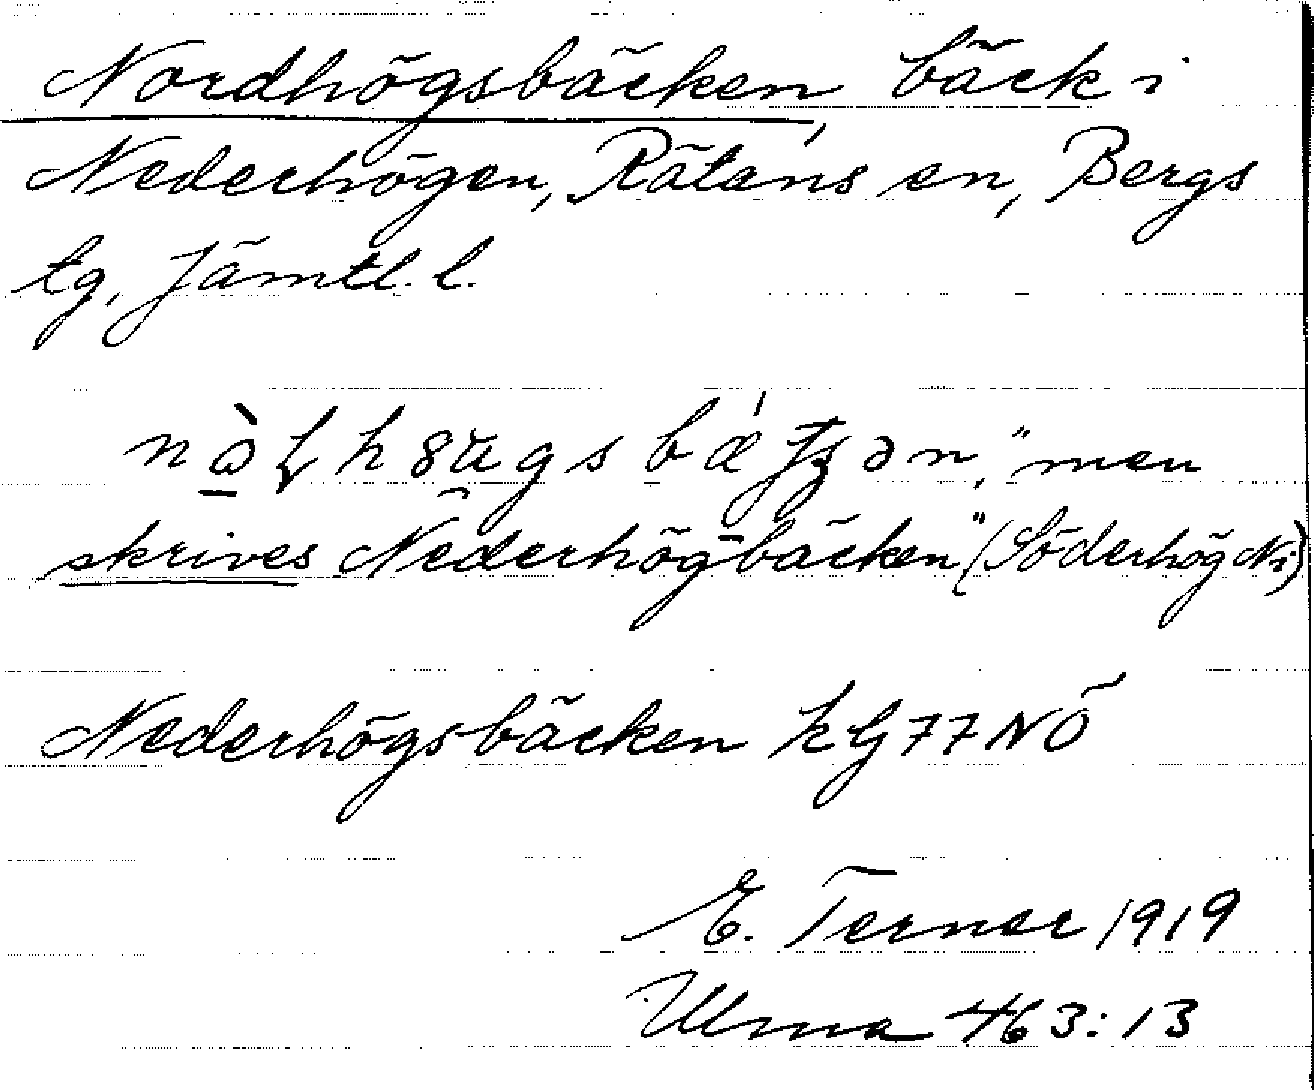 Nordhögsbäcken, bäck i
Nederhögen, Rätans sn, Bergs
tg, Jämtl. l.
men
skrives Nederhögbäcken" (Söderhög Ni)
Nederhögsbäcken kG77NÖ
E. Terner 1919
Ulma 463:13